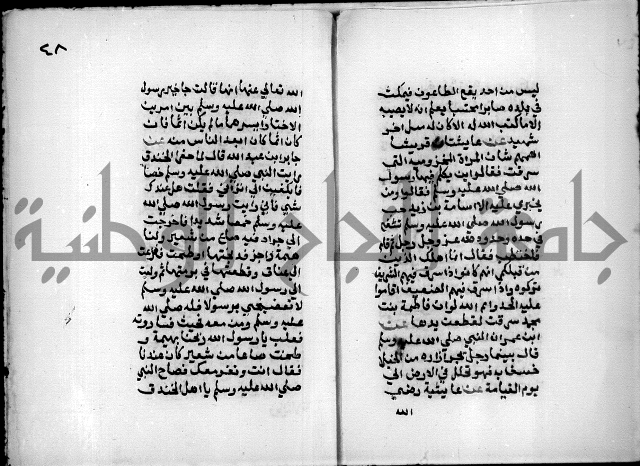 ليس من احد يقع الطاعون فيمكث
في بلده صابرا محتسبا يعلم انه لا يصيبه
الا ما كتب الله له الا كان له مثل اجر
شهيد عن عايشة ان قريشا
اهمهم شان المراة المخزومية التي
سرقت فقالوا من يكلم فيها رسول
الله صلي الله عليه وسلم فقالوا ومن
يجترئ عليه الا اسامة بن زيد حب
رسول الله صلي الله عليه وسلم تشفع
في حد من حدود الله عز وجل ثم قام
فاختطب فقال انما اهلك الذين
من قبلكم انهم كانوا اذا سرق فيهم الشريف
تركوه واذا سرق فيهم الضعيف اقاموا
عليه الحد وايم الله لو ان فاطمة بنت
محمد سرقت لقطعت يدها عن
ابن عمر ان النبي صلي الله عليه وسلم
قال بينما رجل يجر ازاره من الخيلا
خسف به فهو يتجلجل في الارض الي
يوم القيامة عن عايشة رضي
الله
٤٨
الله تعالي عنها انها قالت ما خير رسول
الله صلي الله عليه وسلم بين امرين
الا اختار ايسرهما ما لم يكن اثما فان
كان اثما كان ابعد الناس منه عن
جابر بن عبد الله قال لما حفر الخندق
رايت النبي صلي الله عليه وسلم خمصا
فانكفيت الي امراتي فقلت هل عندك
شئ فاني رايت رسول الله صلي الله
عليه وسلم خمصا شديدا فاخرجت
الي جرابا فيه صاع من شعير ولنا
بهيمة داجن فذبحتها وطحنت ففرغت
الي فراغي وقطعتها في برمتها ثم وليت
الي رسول الله صلي الله عليه وسلم
لا تفضحني برسول الله صلي الله
عليه وسلم ومن معه فجيت فساررته
فقلت يا رسول الله ذبحنا بهيمة و
طحنت صاعا من شعير كان عندنا
فتعال انت ونفر معك فصاح النبي
صلي الله عليه وسلم يا اهل الخندق
جامعة النجاح الوطنية